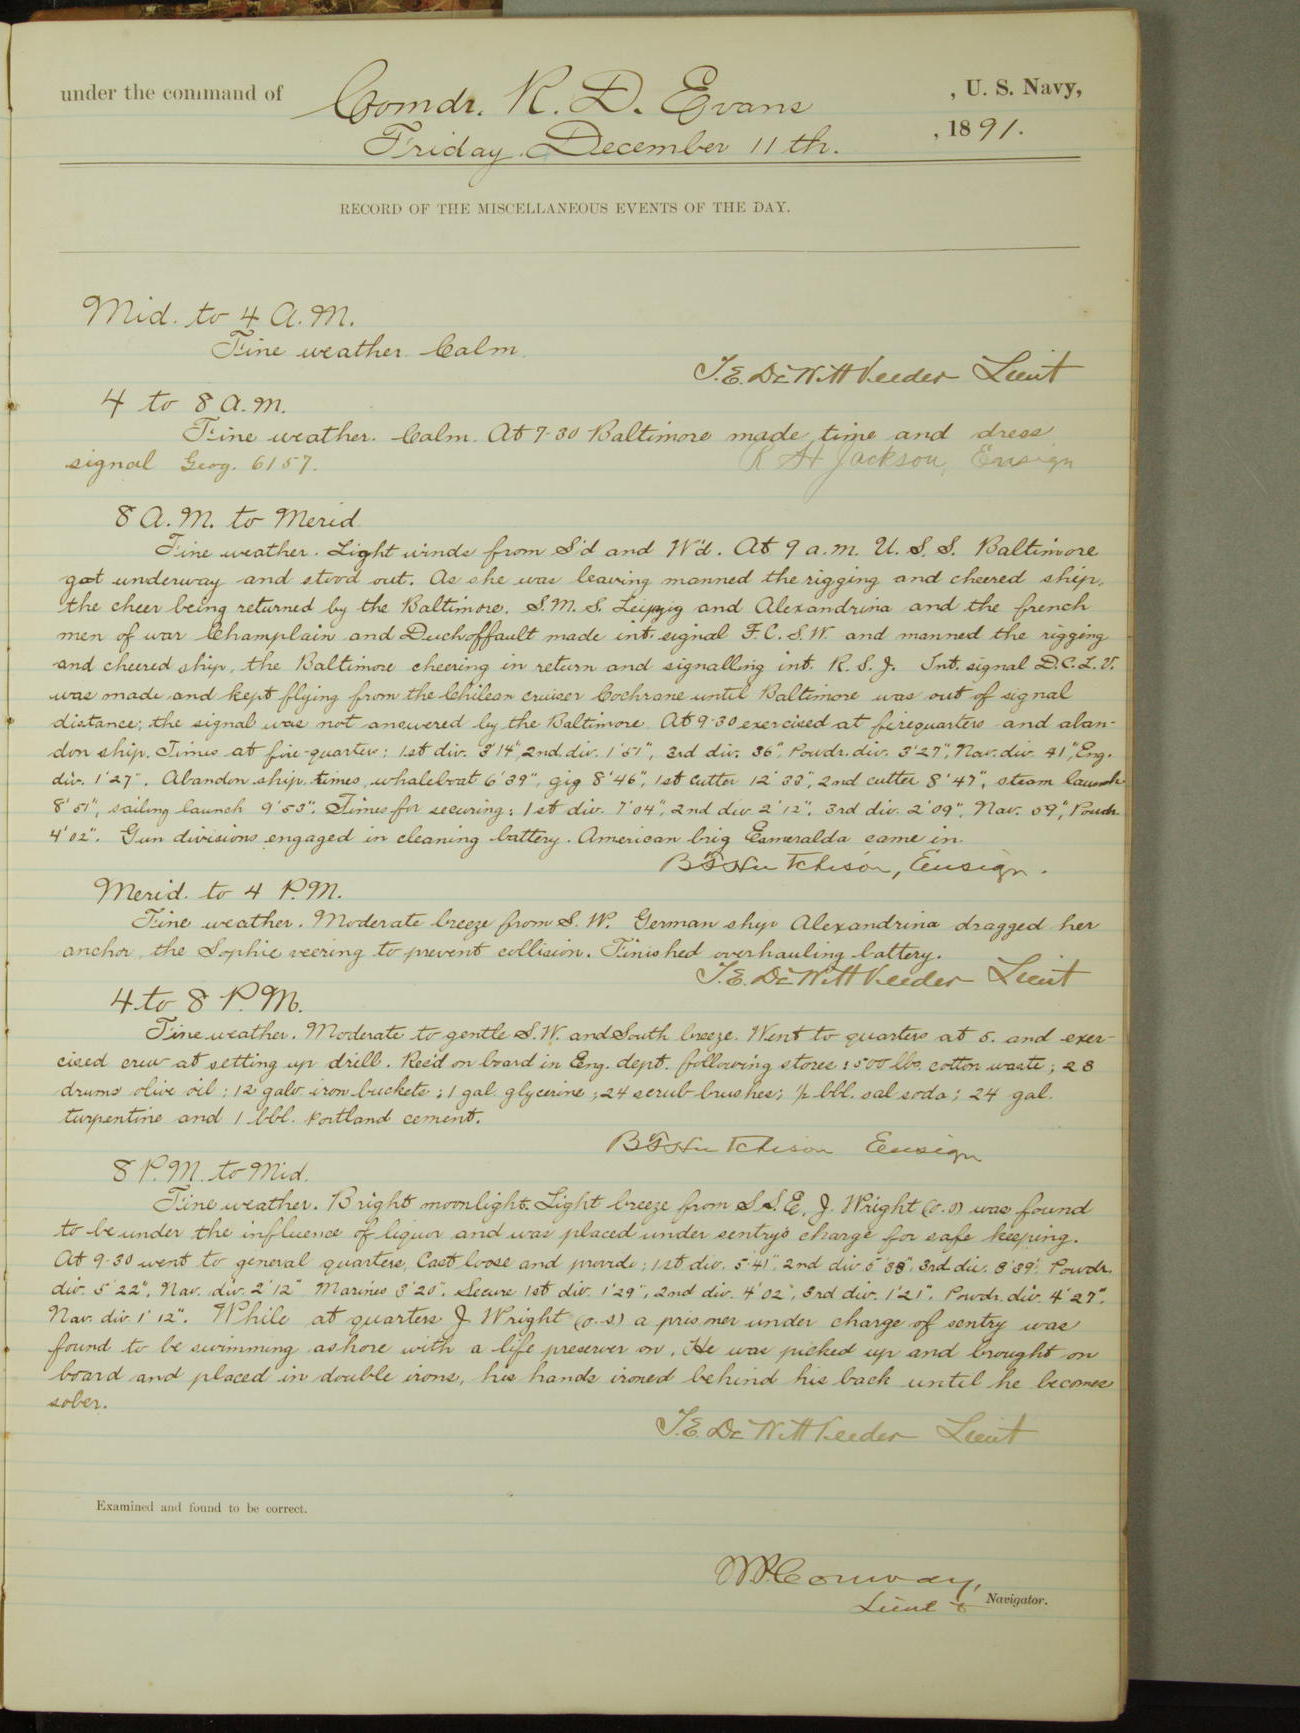 under the command of Comdr. R. D. Evans , U. S. Navy,
Friday December 11th. , 1891.
RECORD OF THE MISCELLANEOUS EVENTS OF THE DAY.
Mid. to 4 A.M.
Fine weather. Calm.
T.E. DeWitt Veeder Lieut
4 to 8 A.M.
Fine weather. Calm. At 7-30 Baltimore made time and dress
signal Geog. 6157. R H Jackson, Ensign
8 A.M. to Merid.
Fine weather. Light winds from S'd and W'd. At 9 a.m. U. S. S. Baltimore
got underway and stood out. As she was leaving manned the rigging and cheered ship,
the cheer being returned by the Baltimore. S.M.S. Leipzig and Alexandrina and the french
men of war Champlain and Duchoffault made int. signal F.C.S.W. and manned the rigging
and cheered ship, the Baltimore cheering in return and signalling int. R.S.J. Int. signal D.C.L.V.
was made and kept flying from the Chilean cruiser Cochrane until Baltimore was out of signal
distance; the signal was not answered by the Baltimore. At 9-30 exercised at firequarters and aban-
don ship. Times at fire-quarters: 1st div. 3'14", 2nd. div. 1'51", 3rd div. 36", Powdr. div. 3'27", Nav. div. 41", Eng.
div. 1'27". Abandon ship times, whaleboat 6'39", gig 8'46", 1st cutter 12'33", 2nd cutter 8'47", steam launch
8'51", sailing launch 9'53". Times for securing: 1st div. 7'04", 2nd div 2'12". 3rd div. 2'09", Nav. 59", Powdr.
4'02". Gun divisions engaged in cleaning battery. American brig Esmeralda came in.
B F Hutchison, Ensign.
Merid. to 4 P.M.
Fine weather. Moderate breeze from S.W. German ship Alexandrina dragged her
anchor, the Sophie veering to prevent collision. Finished overhauling battery.
T.E. DeWitt Veeder Lieut
4 to 8 P.M.
Fine weather. Moderate to gentle S.W. and South breeze. Went to quarters at 5. and exer-
cised crew at setting up drill. Rec'd on board in Eng. dept. following stores: 500 lbs. cotton waste; 28
drums olive oil; 12 galv iron buckets; 1 gal. glycerine; 24 scrub brushes; ½ bbl. sal soda; 24 gal.
turpentine and 1 bbl. Portland cement.
B F Hutchison Ensign
8 P.M. to Mid.
Fine weather. Bright moonlight. Light breeze from S.S.E. J. Wright (o.s) was found
to be under the influence of liquor and was placed under sentry's charge for safe keeping.
At 9-30 went to general quarters, Cast loose and provide; 1st div. 5'41", 2nd div 5'38", 3rd div. 8'39". Powdr.
div. 5'22", Nav. div. 2'12" Marines 3'20". Secure 1st div. 1'29", 2nd div. 4'02", 3rd div. 1'21". Powdr. div. 4'27".
Nav. div. 1'12". While at quarters J. Wright (o.s) a prisoner under charge of sentry was
found to be swimming ashore with a life preserver on. He was picked up and brought on
board and placed in double irons, his hands ironed behind his back until he becomes
sober.
T.E. DeWitt Veeder Lieut
Examined and found to be correct.
W. P. Conway,
Lieut & Navigator.